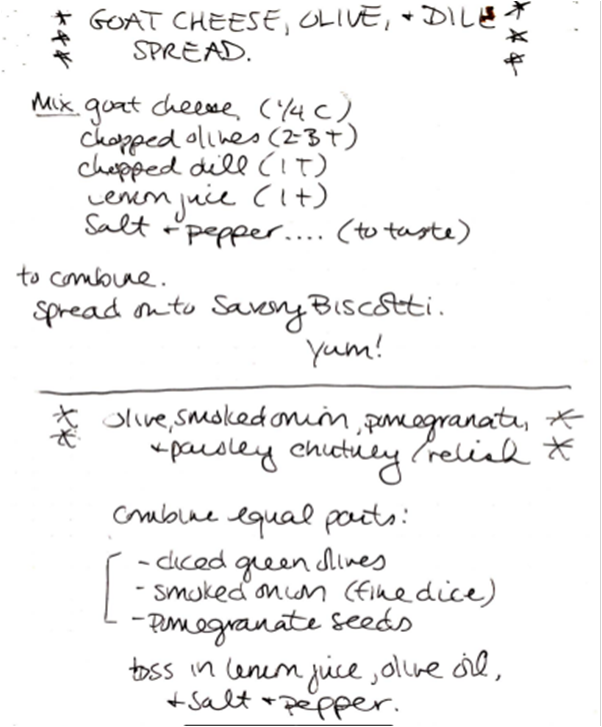 * GOAT CHEESE, OLIVE, + DILL *
* SPREAD. *
* *
Mix goat cheese (1/4 C)
chopped olives (2-3 T)
chopped dill (1 T)
lemon juice (1 t)
Salt + pepper.... (to taste)
to combine.
spread onto Savory BiscOtti.
Yum!
* olive, smoked onion, pomegranate, *
* + parsley chutney / relish *
combine equal parts:
- diced green olives
- smoked onion (fine dice)
- pomegranate seeds
toss in lemon juice, olive oil,
+ salt + pepper.